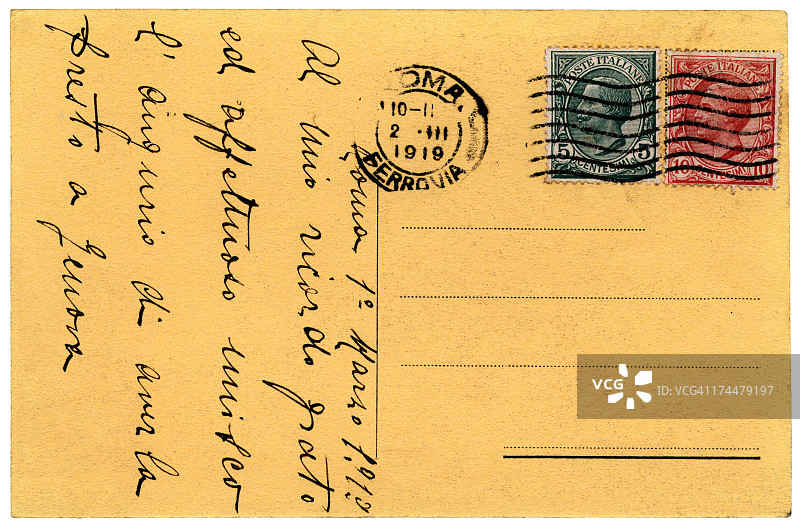 Roma, 1º Marzo 1919
Al mio ricordo grato
ed affettuoso unisco
l'augurio di averla
presto a Genova
ROMA
10-11
2 III
1919
FERROVIA
POSTE ITALIANE
5 5
CENTESIMI
POSTE ITALIANE
10 10
CENTESIMI
VCG
ID: VCG41174479197